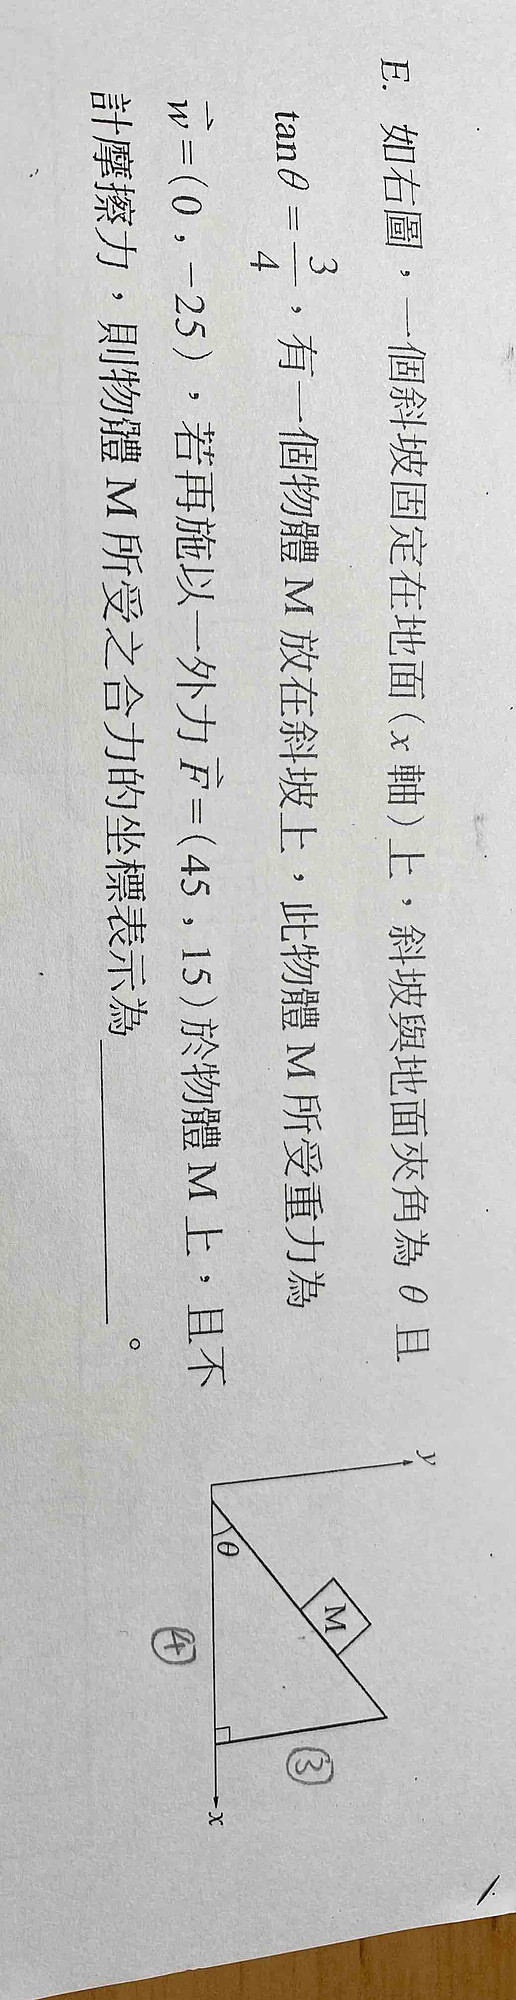 E. 如右圖，一個斜坡固定在地面(x 軸)上，斜坡與地面夾角為 θ 且
tanθ = 3/4，有一個物體 M 放在斜坡上，此物體 M 所受重力為
w⃗ = (0，−25)，若再施以一外力 F⃗ = (45，15)於物體 M 上，且不
計摩擦力，則物體 M 所受之合力的坐標表示為＿＿＿＿＿＿。
y
M
θ
③
④
x